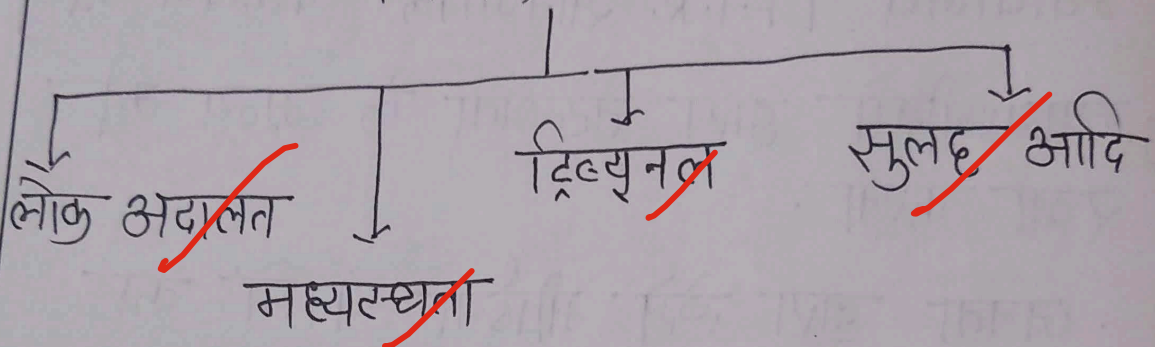 लोक अदालत
मध्यस्थता
ट्रिब्युनल
सुलह आदि